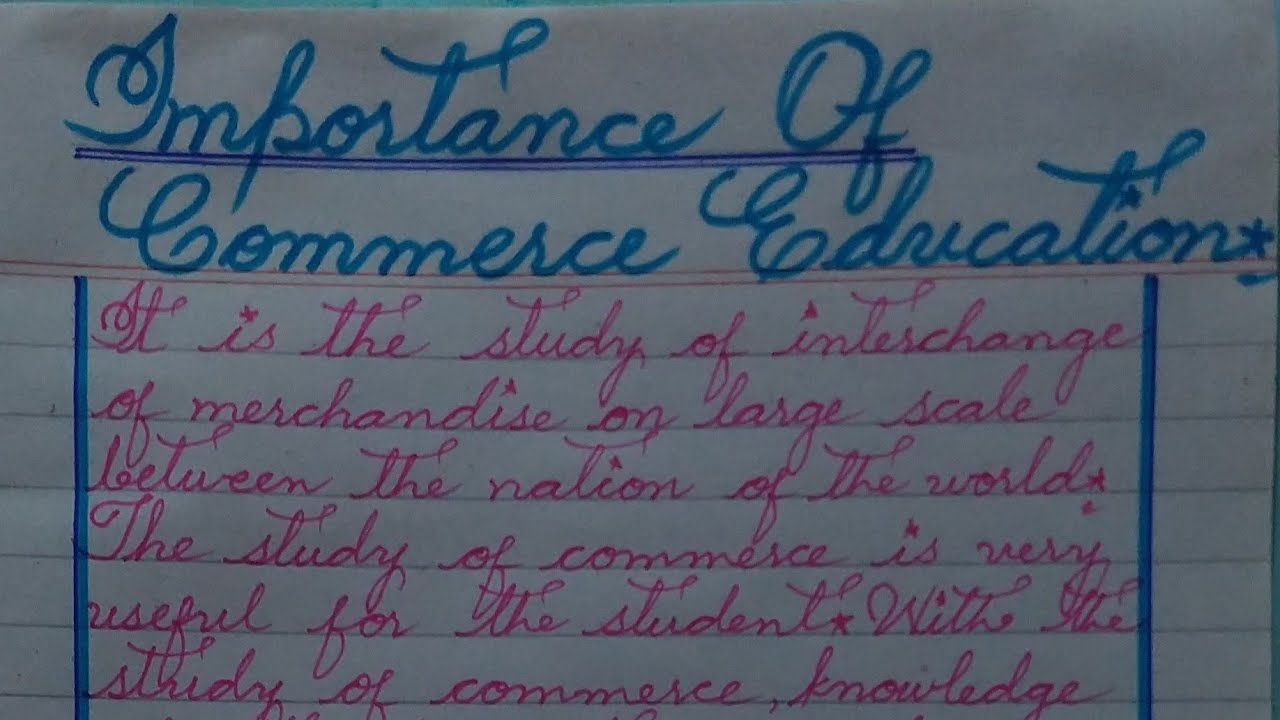 Importance Of
Commerce Education*
It is the study of interchange
of merchandise on large scale
between the nation of the world*
The study of commerce is very
useful for the student* With the
study of commerce, knowledge